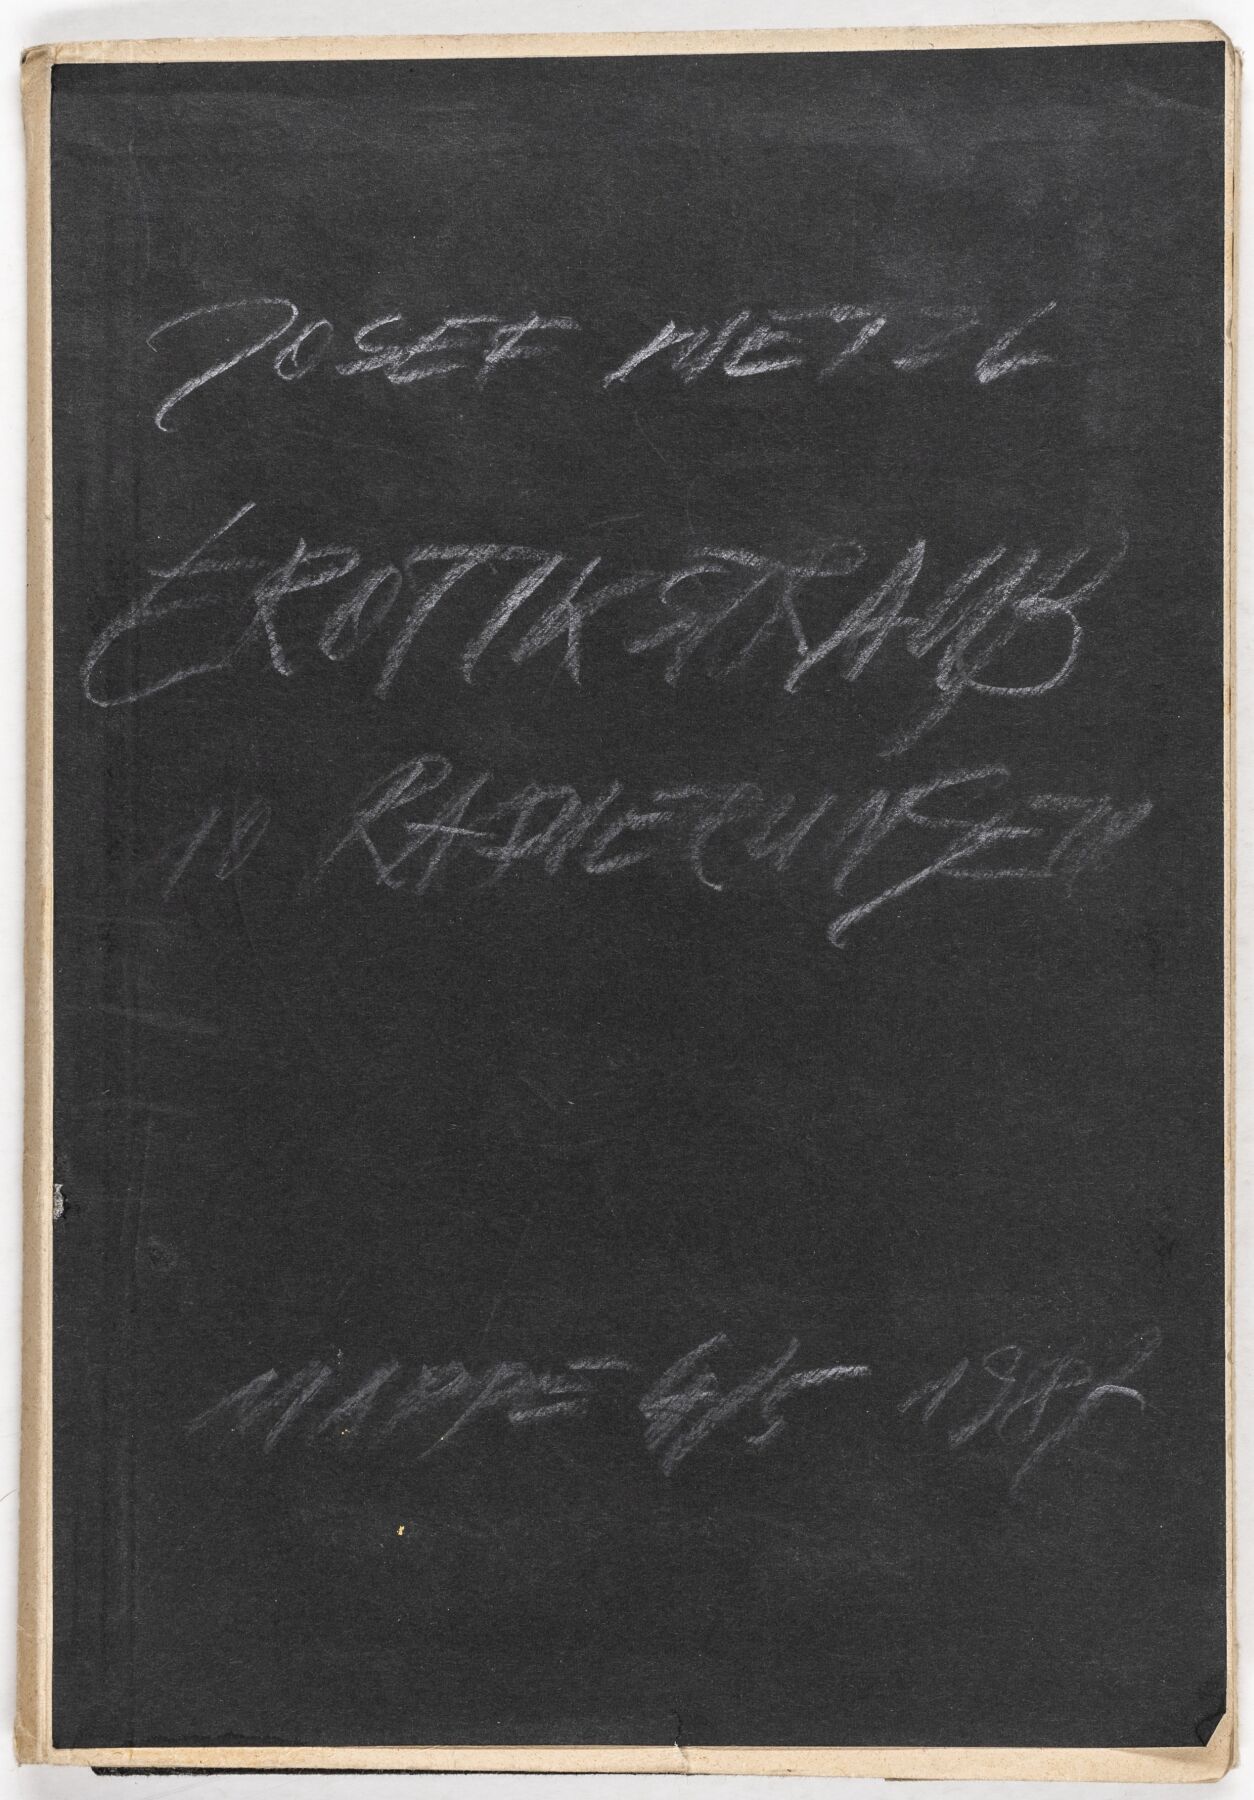 JOSEF WETZL
EROTIKSTRAUß
10 RADIERUNGEN
MAPPE 4/5 1987